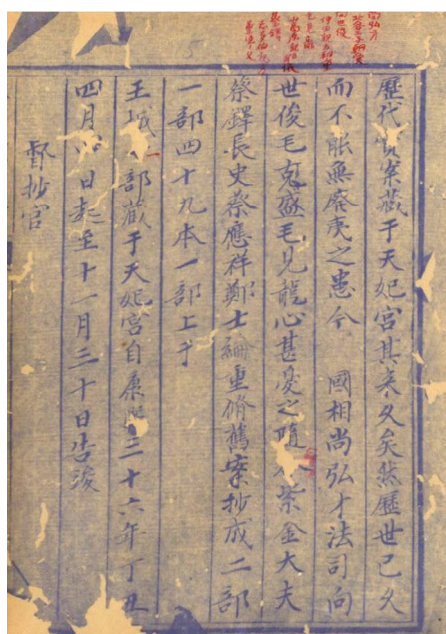 歷代寶案藏于天妃宮其來久矣然歷世已久
而不能無廢夷之患今 國相尚弘才法司向
世俊毛克盛毛見龍心甚憂之隨 紫金大夫
蔡鐸長史蔡應祥鄭士綸重脩舊案抄成二部
一部四十九本一部上于
王城 部藏于天妃宮自康熙三十六年丁丑
四月 日起至十一月三十日告竣
督抄官